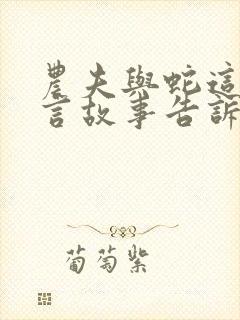 農夫與蛇這
言故事告訴
葡萄紫